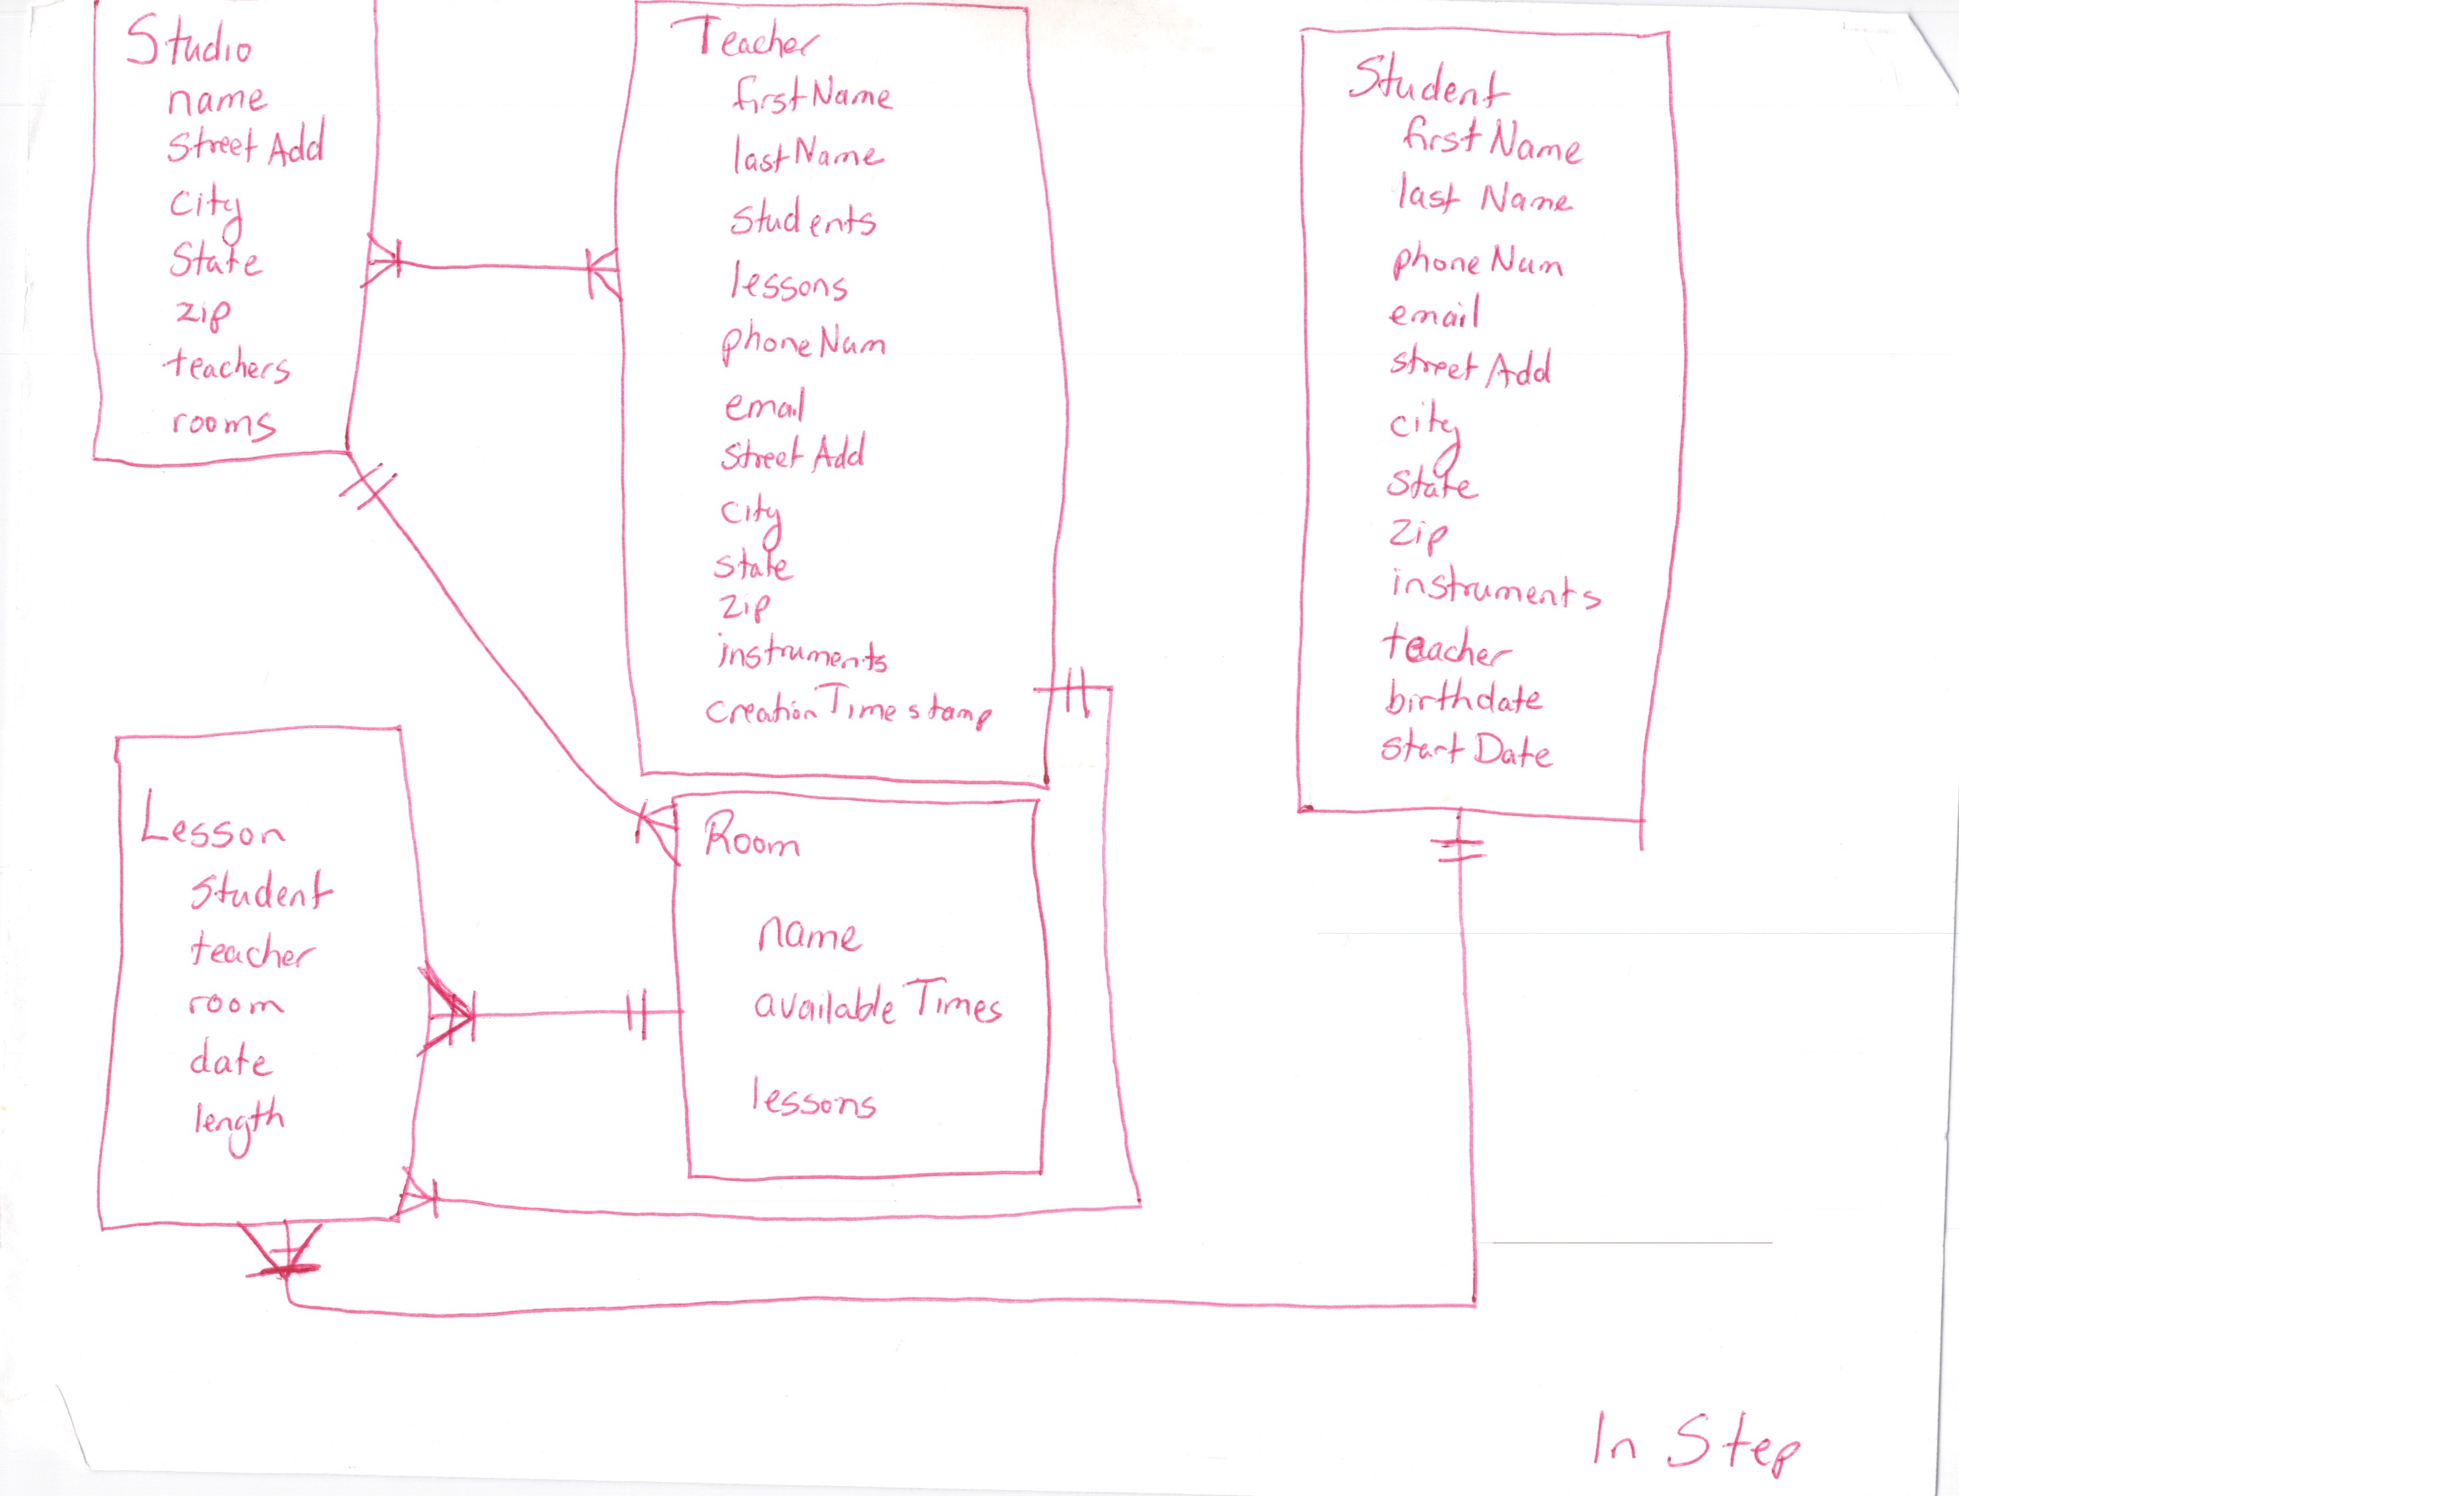 Studio
name
Street Add
City
State
zip
teachers
rooms
Teacher
firstName
lastName
Students
lessons
phoneNum
email
Street Add
City
State
zip
instruments
creationTimestamp
Student
firstName
last Name
phoneNum
email
street Add
city
State
Zip
instruments
teacher
birthdate
start Date
Lesson
Student
teacher
room
date
length
Room
name
availableTimes
lessons
In Step